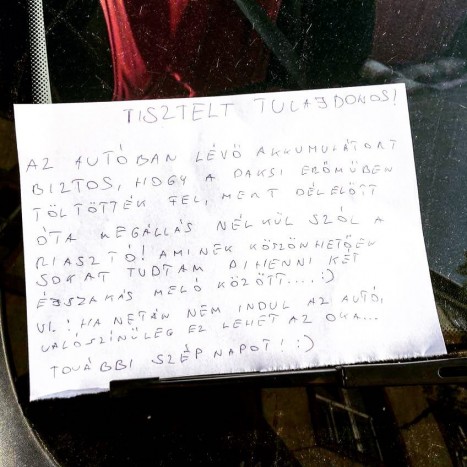 TISZTELT TULAJDONOS!
AZ AUTÓBAN LÉVŐ AKKUMULÁTORT
BIZTOS, HOGY A PAKSI ERŐMŰBEN
TÖLTÖTTÉK FEL, MERT DÉLELŐTT
ÓTA MEGÁLLÁS NÉLKÜL SZÓL A
RIASZTÓ! AMINEK KÖSZÖNHETŐEN
SOKAT TUDTAM PIHENNI KÉT
ÉJSZAKÁS MELÓ KÖZÖTT....:)
UI.: HA NETÁN NEM INDUL AZ AUTÓ,
VALÓSZÍNŰLEG EZ LEHET AZ OKA...
TOVÁBBI SZÉP NAPOT! :)